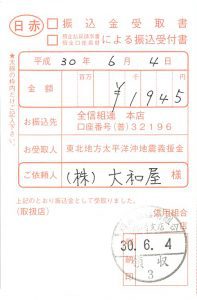 日赤
振込金受取書
による振込受付書
平成 30年 6月 4日
金額 ¥1945
お振込先 全信組連 本店
口座番号(普)32196
お受取人 東北地方太平洋沖地震義援金
ご依頼人 (株)大和屋 様
上記のとおり振込金として受取りました。
(取扱店) 信用組合
30.6.4
領収
3